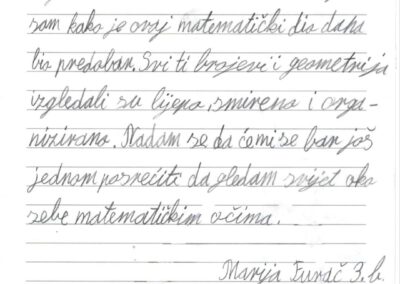 sam kako je ovaj matematički dio dana
bio predobar. Svi ti brojevi i geometrija
izgledali su lijepo, smireno i orga-
nizirano. Nadam se da će mi se bar još
jednom posrećiti da gledam svijet oko
sebe matematičkim očima.
Marija Furač 3. b.